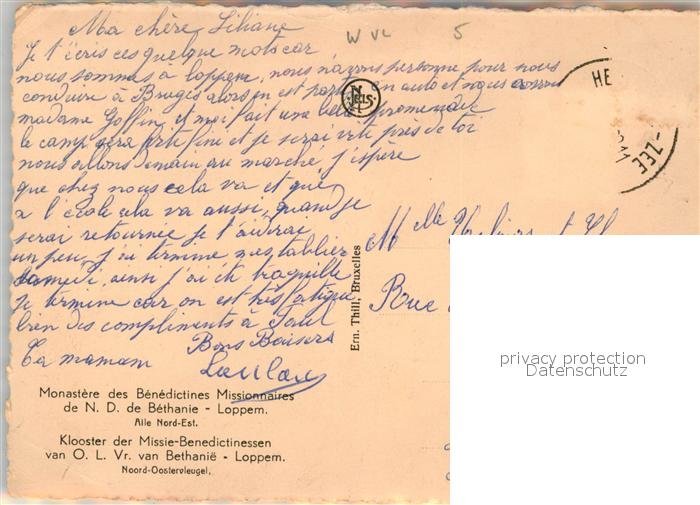 Ma chère Liliane
Je t'écris ces quelque mots car
nous sommes à loppem, nous n'avons personne pour nous
conduire à Bruges alors on est parti en auto et nous avons
madame Goffin et moi fait une belle promenade
le camp sera vite fini et je serai vite près de toi
nous allons demain au marché j'espère
que chez nous cela va et qu'
à l'école cela va aussi, quand je
serai retournée je t'aiderai
un peu, j'ai terminé mes tablier
samedi, ainsi j'ai été tranquille
Je termine car on est très fatigué
bien des compliments à
Bons Baisers
Ta maman
Loulou
Monastère des Bénédictines Missionnaires
de N. D. de Béthanie - Loppem.
Aile Nord-Est.
Klooster der Missie-Benedictinessen
van O. L. Vr. van Bethanië - Loppem.
Noord-Oostervleugel.
Ern. Thill, Bruxelles
NELS
W VL 5
HE
-ZEE
Mlle
Rue
privacy protection
Datenschutz